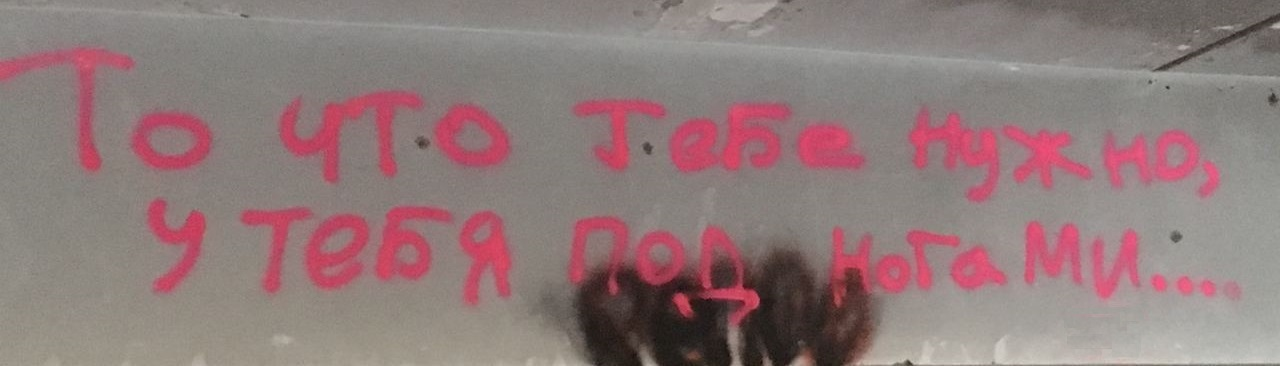 То что тебе нужно,
у тебя под ногами....